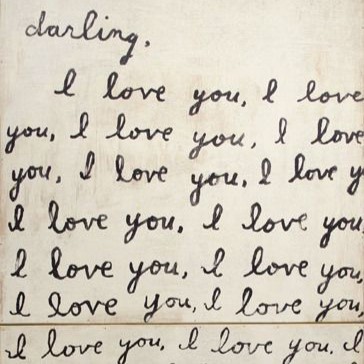 darling,
I love you, I love
you, I love you, I love
you, I love you, I love y
I love you, I love you
I love you, I love you,
I love you, I love you,
I love you, I love you, I